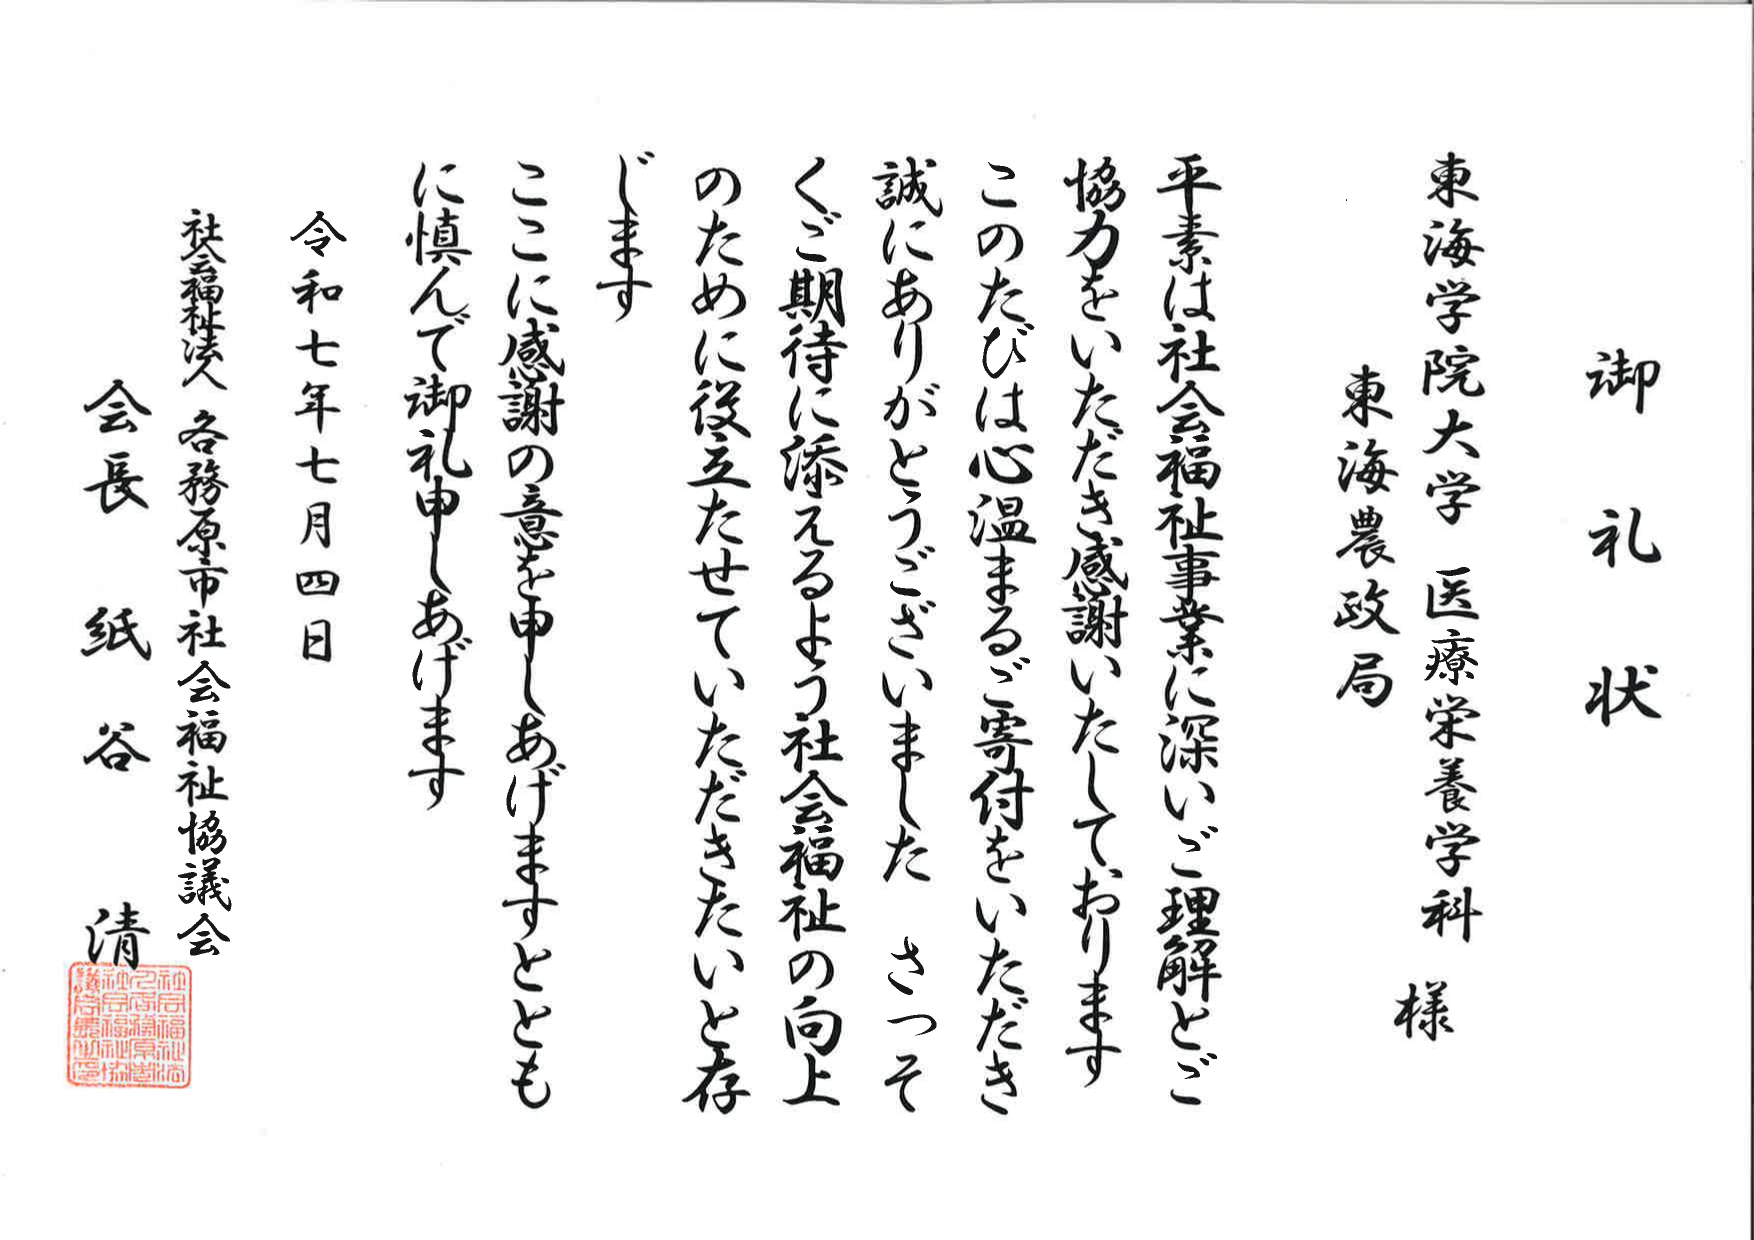 御礼状
東海学院大学 医療栄養学科
東海農政局
様
平素は社会福祉事業に深いご理解とご
協力をいただき感謝いたしております
このたびは心温まるご寄付をいただき
誠にありがとうございました さっそ
くご期待に添えるよう社会福祉の向上
のために役立たせていただきたいと存
じます
ここに感謝の意を申しあげますととも
に慎んで御礼申しあげます
令和七年七月四日
社会福祉法人 各務原市社会福祉協議会
会長 紙谷 清